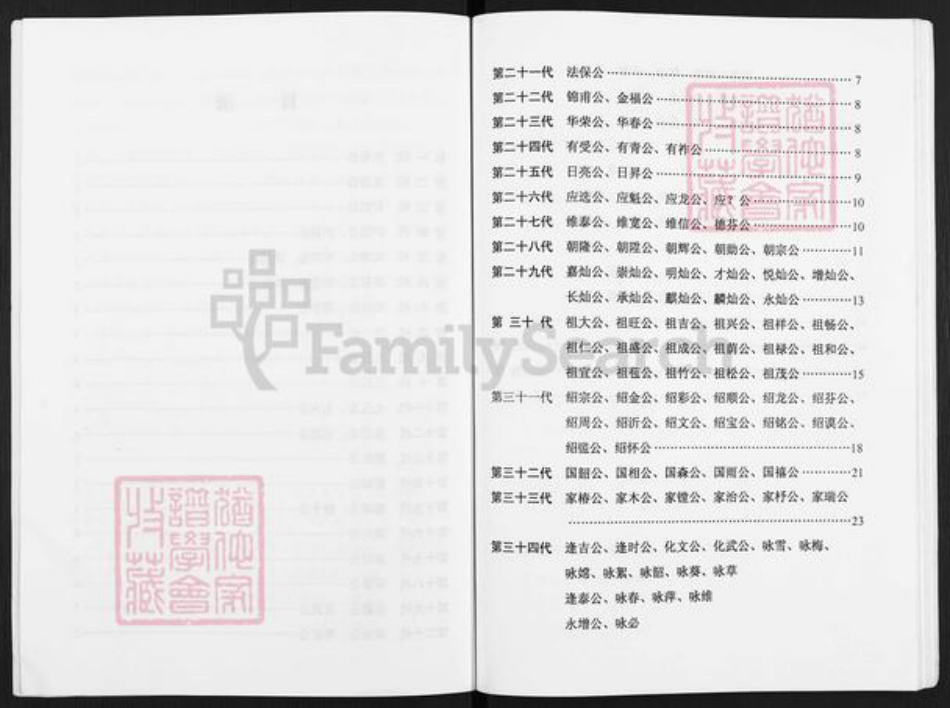 第二十一代 法保公…………7
第二十二代 锦甫公、金福公…………8
第二十三代 华荣公、华春公…………8
第二十四代 有受公、有青公、有祚公…………8
第二十五代 日亮公、日昇公…………9
第二十六代 应选公、应魁公、应龙公、应？公…………10
第二十七代 维泰公、维宽公、维信公、德芬公…………10
第二十八代 朝隆公、朝陞公、朝辉公、朝勋公、朝宗公…………11
第二十九代 嘉灿公、崇灿公、明灿公、才灿公、悦灿公、增灿公、
长灿公、承灿公、麒灿公、麟灿公、永灿公…………13
第 三十 代 祖大公、祖旺公、祖吉公、祖兴公、祖祥公、祖畅公、
祖仁公、祖盛公、祖成公、祖荫公、祖禄公、祖和公、
祖宜公、祖苞公、祖竹公、祖松公、祖茂公…………15
第三十一代 绍宗公、绍金公、绍彩公、绍顺公、绍龙公、绍芬公、
绍周公、绍沂公、绍文公、绍宝公、绍铭公、绍谟公、
公、绍怀公…………18
第三十二代 国韶公、国相公、国森公、国雨公、国禧公…………21
第三十三代 家椿公、家木公、家镗公、家治公、家杼公、家瑞公
…………23
第三十四代 逢吉公、逢时公、化文公、化武公、咏雪、咏梅、
咏嫦、咏絮、咏韶、咏葵、咏草
逢泰公、咏春、咏萍、咏维
永增公、咏必
FamilySearch
猶他家
譜學會
收藏
猶他家
譜學會
收藏